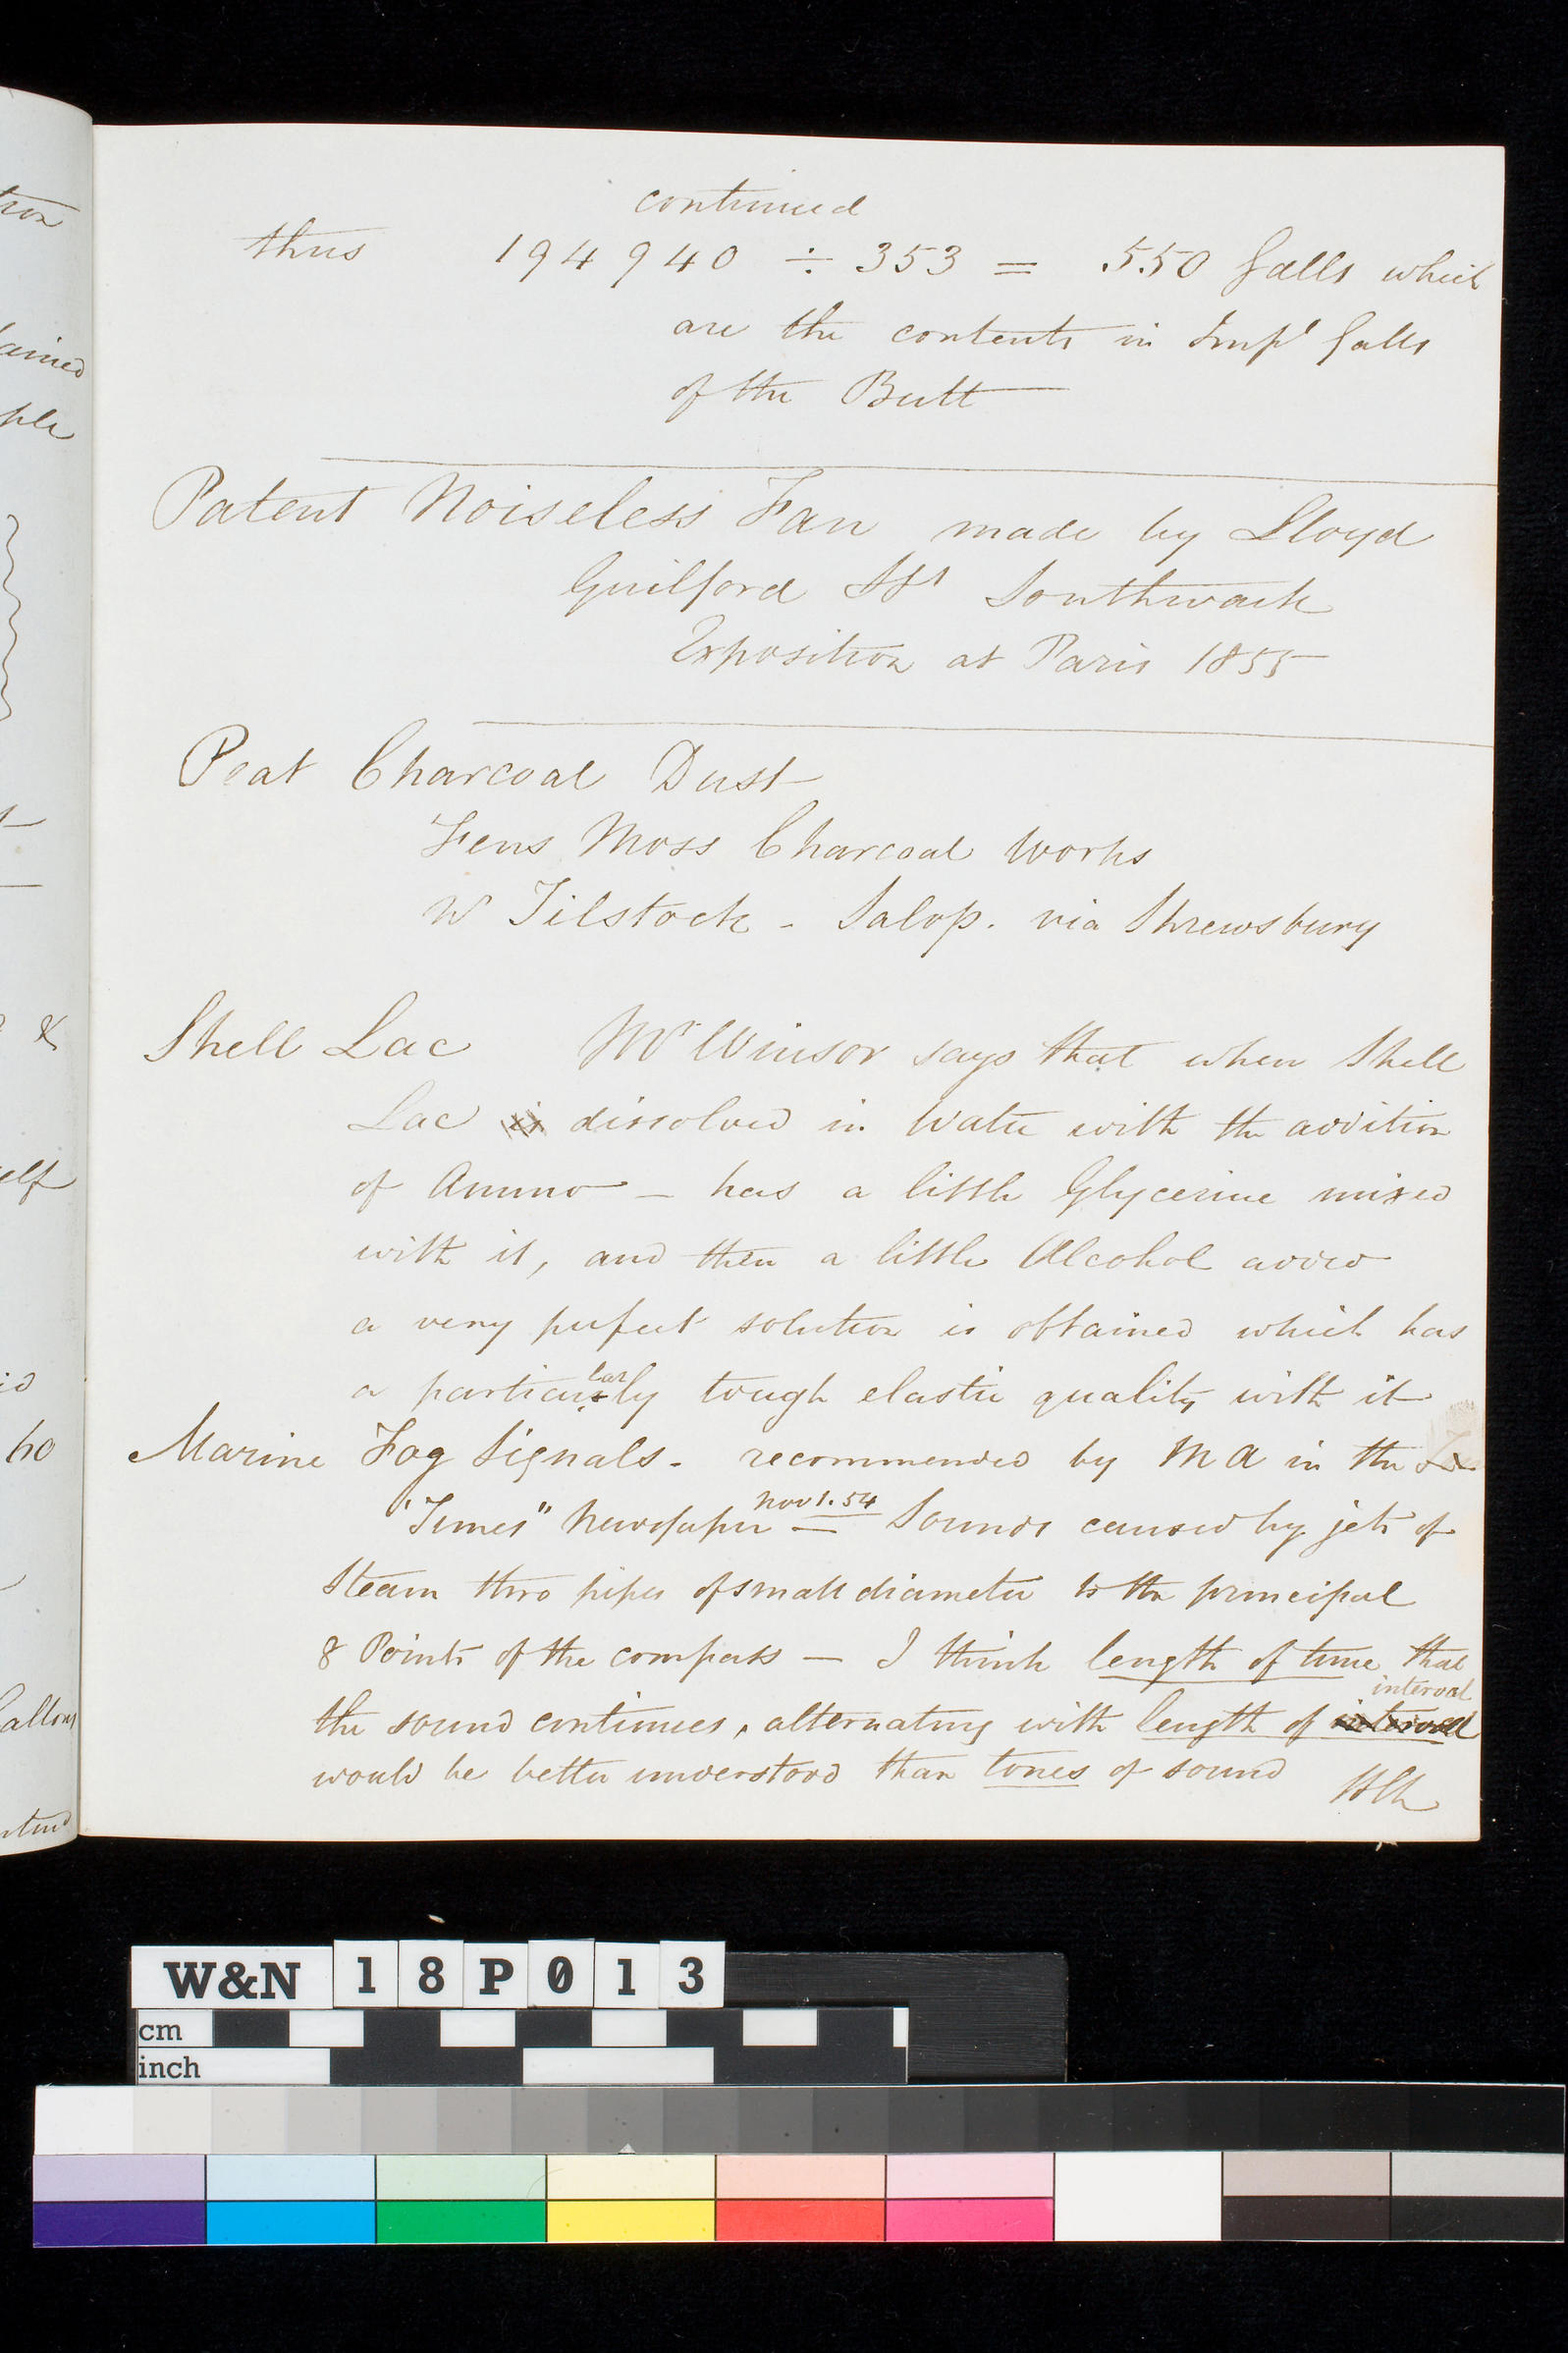 continued
thus 194940 ÷ 353 = 550 Galls which
are the contents in Impl Galls
of the Butt
Patent Noiseless Fan made by Lloyd
Guilford St Southwark
Exposition at Paris 1855
Peat Charcoal Dust
Fens Moss Charcoal Works
W Tilstock - Salop. via Shrewsbury
Shell Lac Mr Winsor says that when Shell
Lac is dissolved in Water with the addition
of Ammo - has a little Glycerine mixed
with it, and then a little Alcohol added
a very perfect solution is obtained which has
a particularly tough elastic quality with it
Marine Fog Signals - recommended by M A in the
"Times" Newspaper Nov 1. 54 = Sounds caused by jets of
Steam thro pipes of small diameter to the principal
8 Points of the compass - I think length of time that
the sound continues, alternating with length of interval
would be better understood than tones of sound
tron
tained
ple
&
self
60
Gallons
W&N 18P013
cm
inch